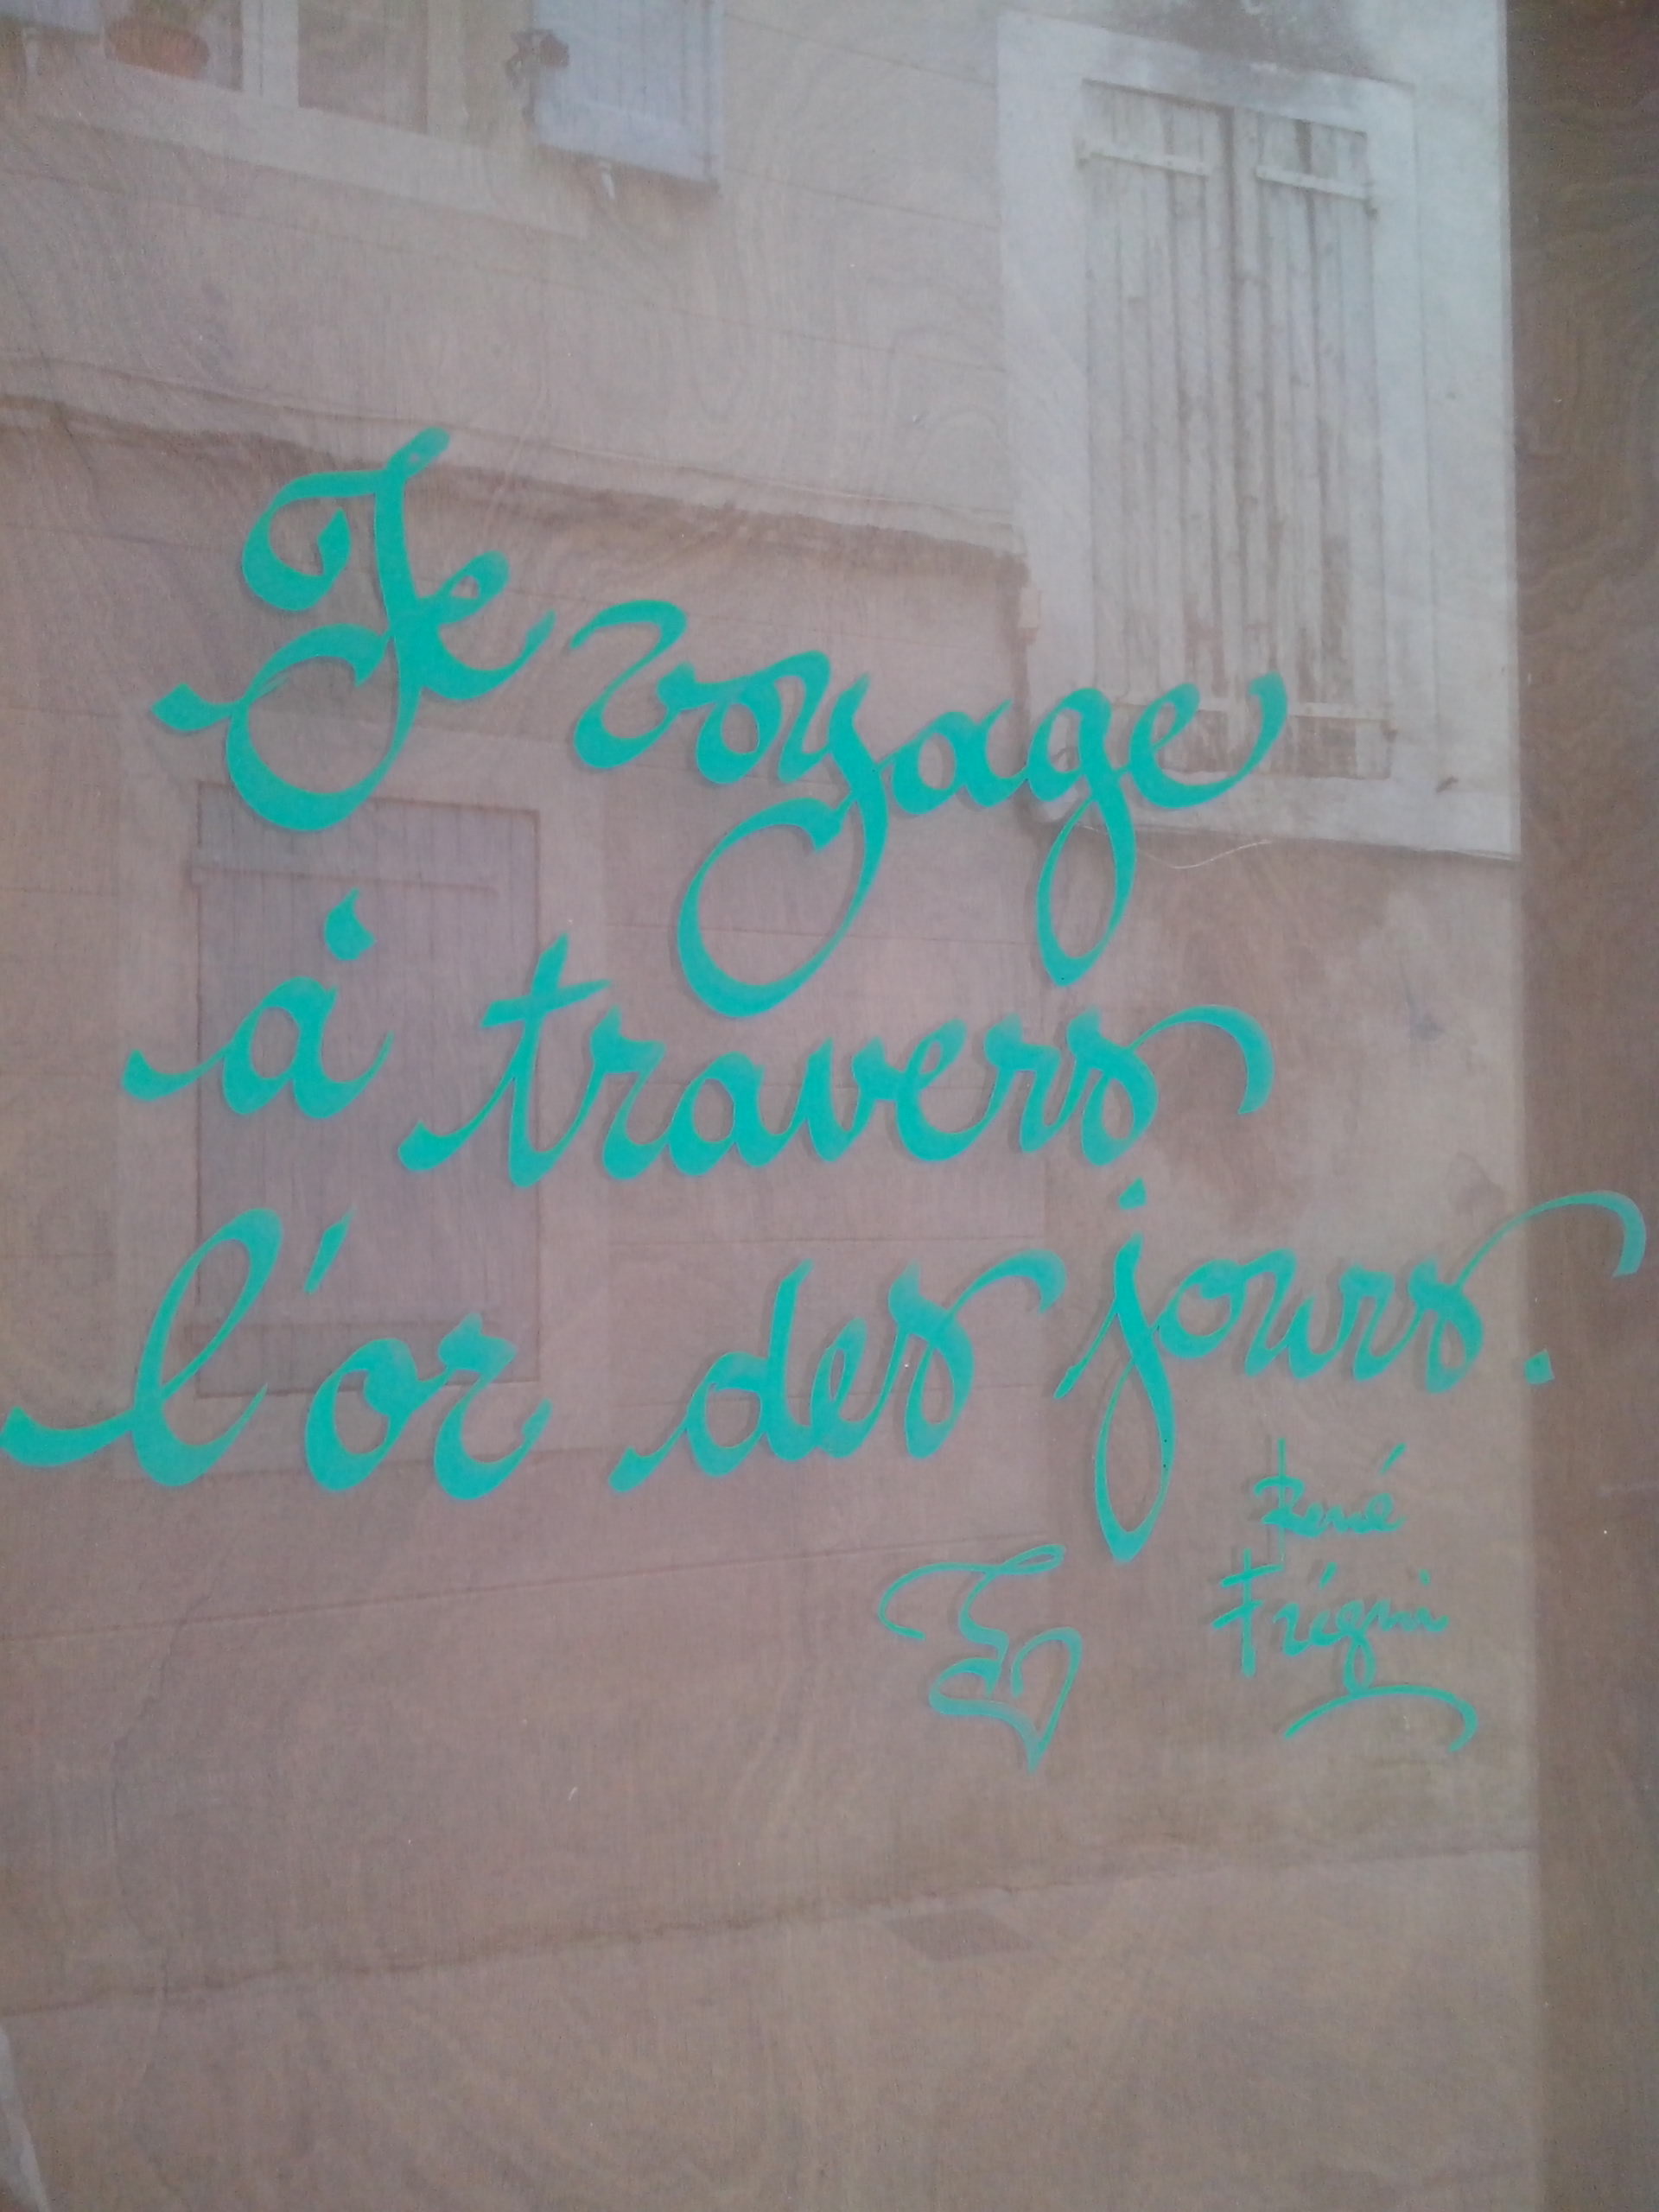 Je voyage
à travers
l'or des jours.
René
Frégni